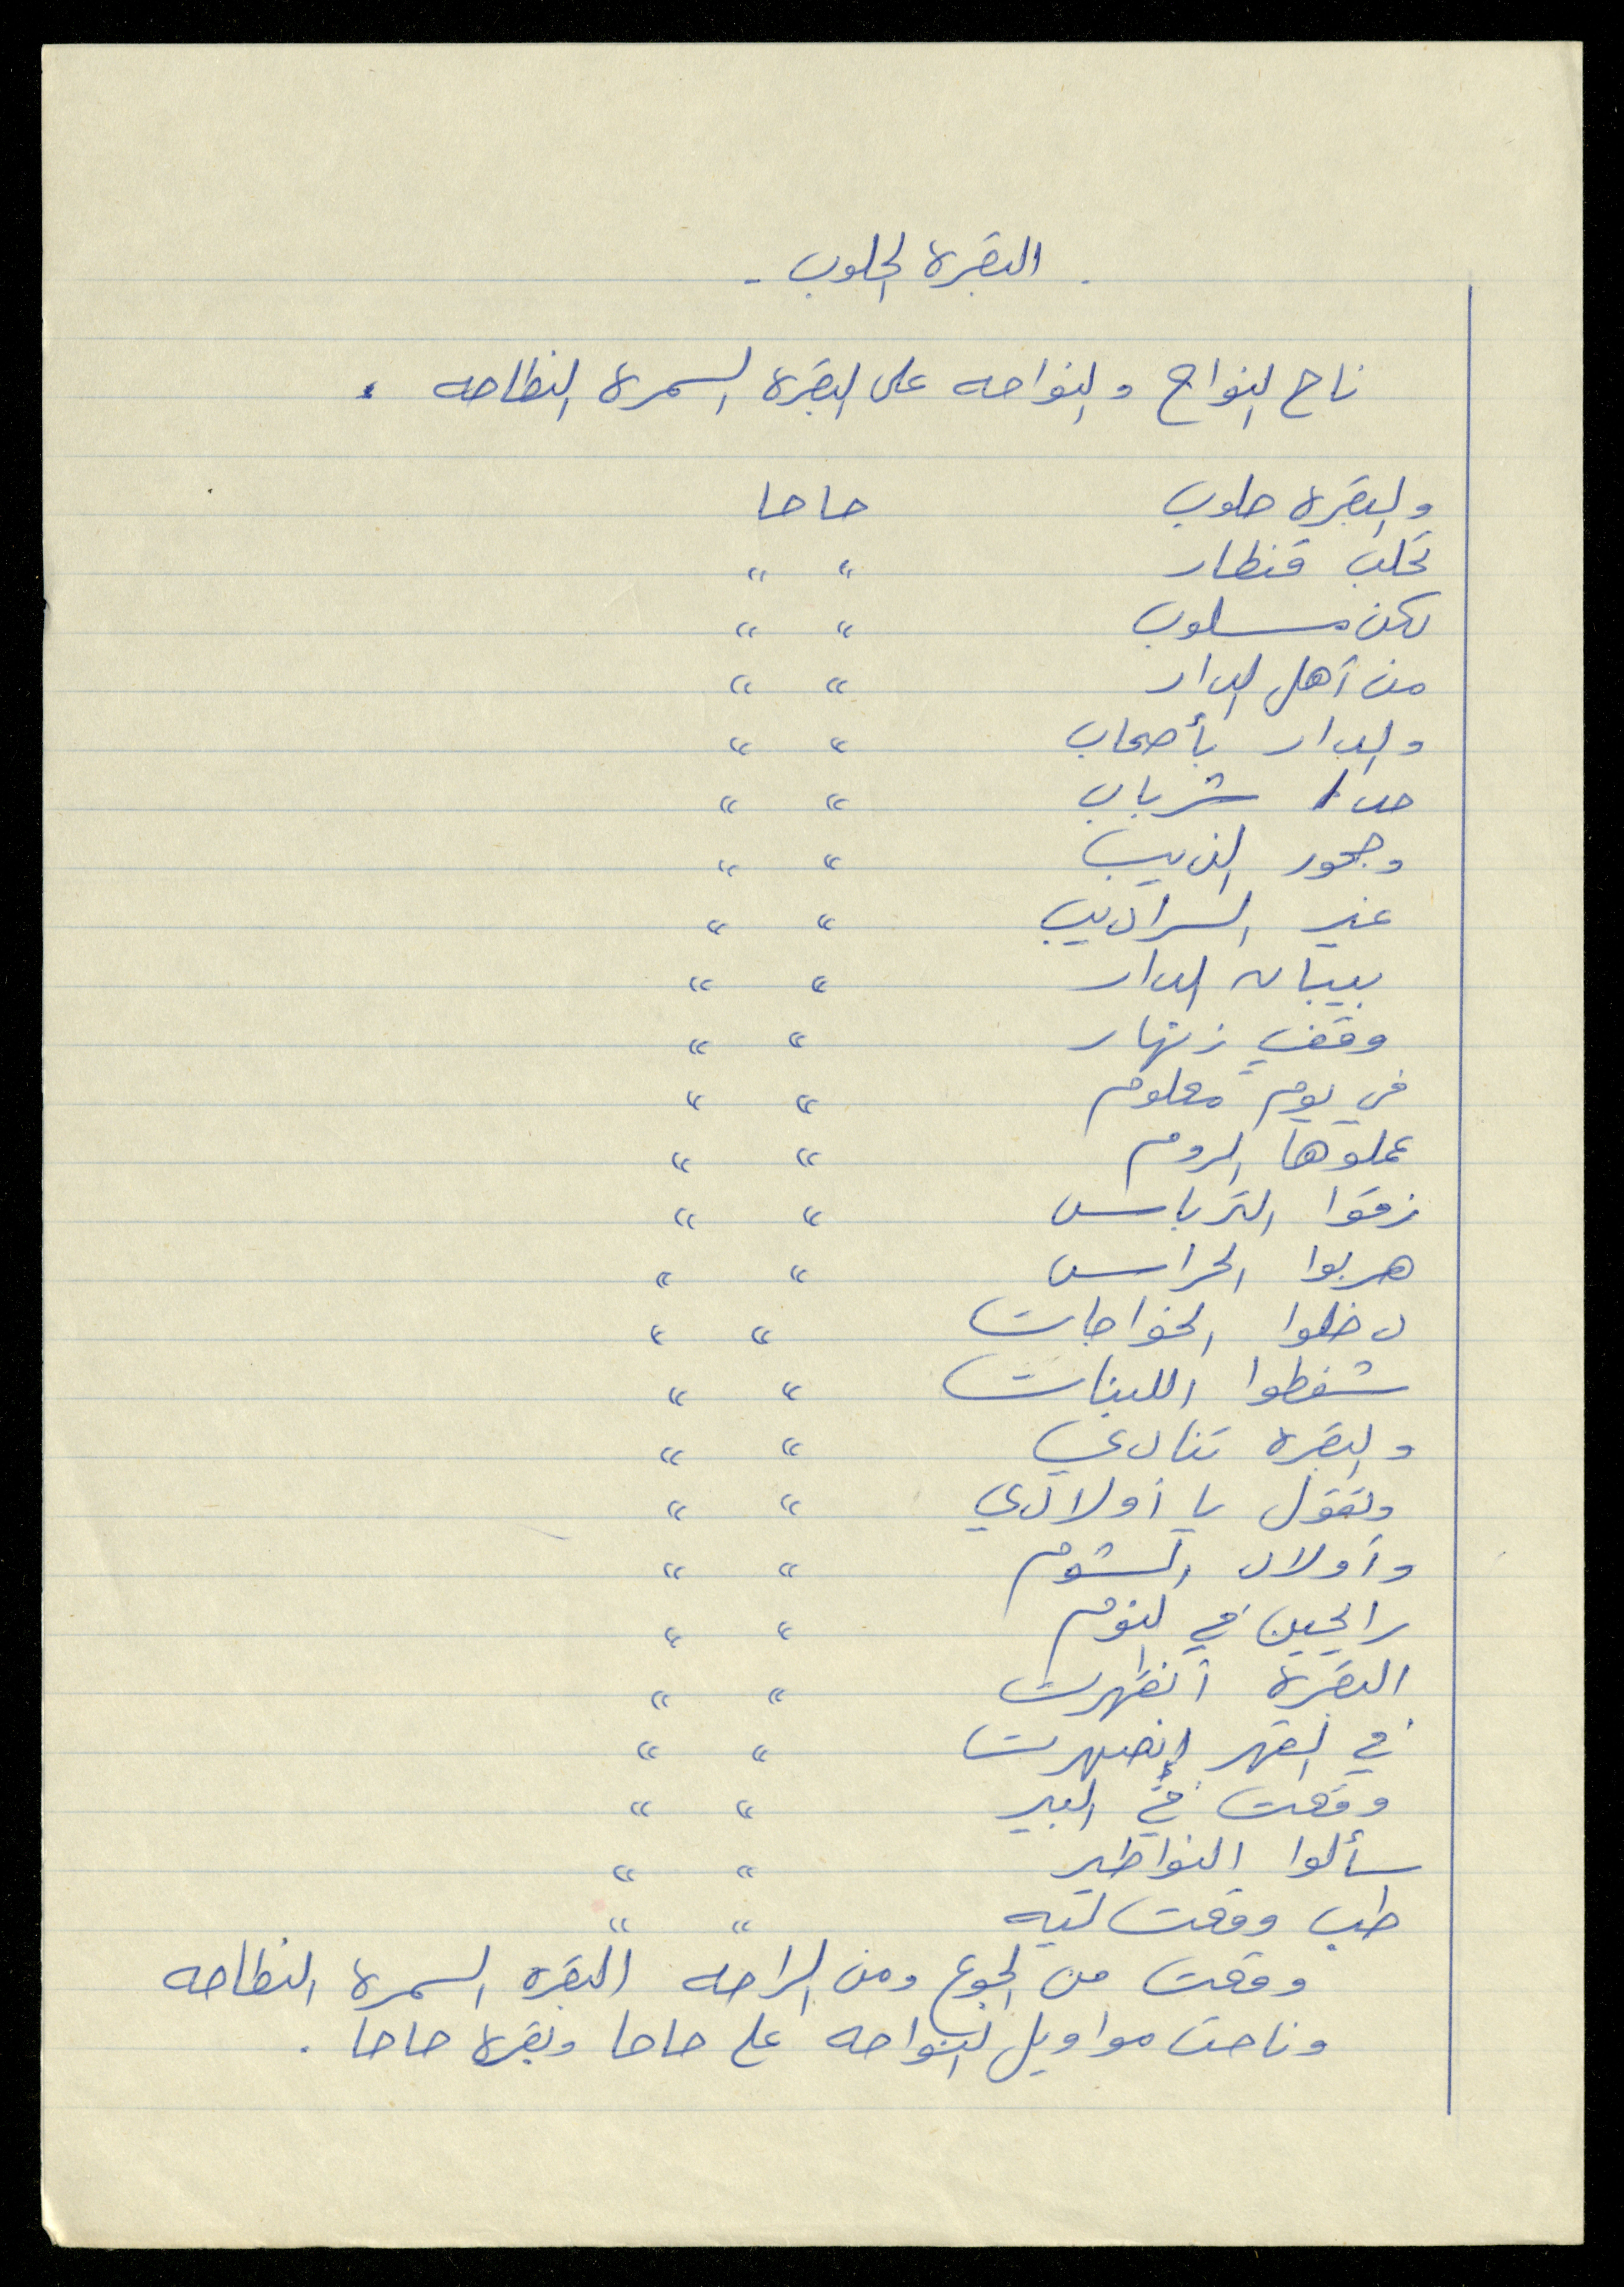 . البقرة الحلوب .
ناح النواح والنواحه على البقرة السمرة النطاحه .
والبقره حلوب حاحا
تحلب قنطار " "
لكن مسلوب " "
من أهل الدار " "
والدار بأصحاب " "
حدا شرباب " "
وجحور الديب " "
غير السراديب " "
بيبان الدار " "
وقفي زنهار " "
في يوم معلوم " "
عملوها الروم " "
زقوا الترباس " "
هربوا الحراس " "
دخلوا الخواجات " "
شفطوا اللبنات " "
والبقره تنادي " "
وتقول يا أولادي " "
وأولاد الشوم " "
رايحين في النوم " "
البقرة أنقهرت " "
في القهر إنصهرت " "
وقعت في البير " "
سألوا النواطير " "
طب وقعت ليه " "
وقعت من الجوع ومن الراحه البقره السمرة النطاحه
وناحت مواويل النواحه على حاحا وبقرة حاحا .